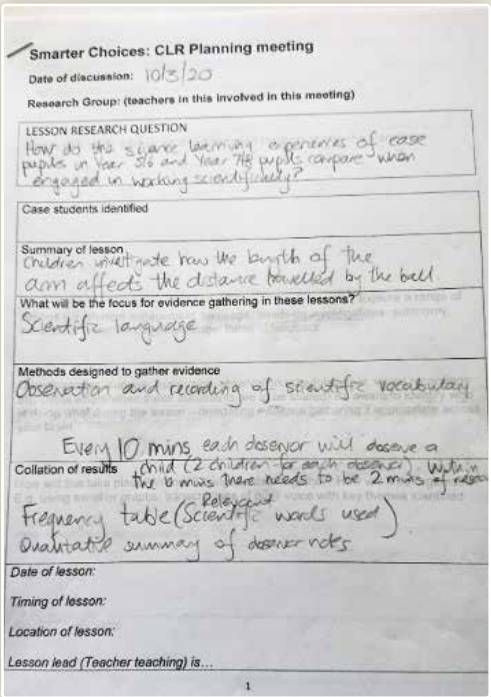 Smarter Choices: CLR Planning meeting
Date of discussion: 10/3/20
Research Group: (teachers in this involved in this meeting)
LESSON RESEARCH QUESTION
How do the science learning experiences of case
pupils in Year 5/6 and Year 7/8 pupils compare when
engaged in working scientifically?
Case students identified
Summary of lesson
Children investigate how the length of the
arm affects the distance travelled by the ball
What will be the focus for evidence gathering in these lessons?
Scientific language
Methods designed to gather evidence
Observation and recording of scientific vocabulary
Every 10 mins each observor will observe a
Collation of results child (2 children for each observer). Within
the 10 mins there needs to be 2 mins of
Relevant
Frequency table (Scientific words used)
Qualitative summary of observer notes
Date of lesson:
Timing of lesson:
Location of lesson:
Lesson lead (Teacher teaching) is...
1